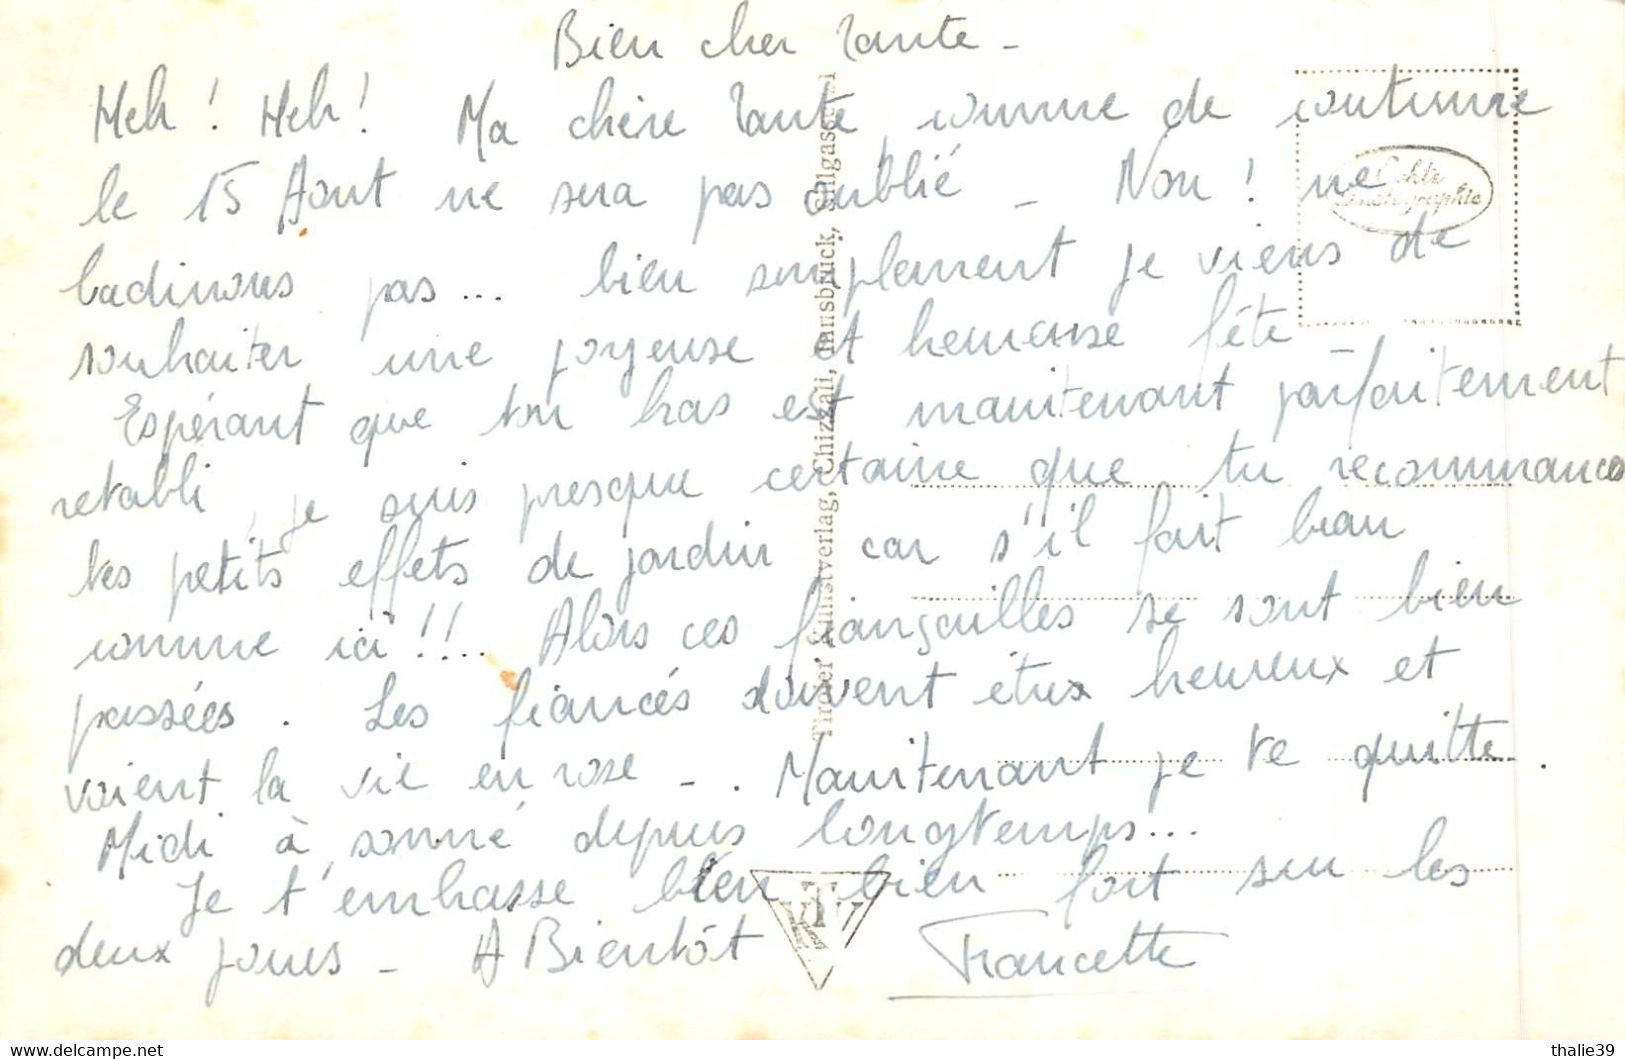 Bien cher Tante -
Heh ! Heh ! Ma chère Tante, comme de coutume
le 15 Aout ne sera pas oublié - Non ! ne
badinons pas... bien simplement je viens de
souhaiter une joyeuse et heureuse fête -
Espérant que ton bras est maintenant parfaitement
retabli, je suis presque certaine que tu recommances
tes petits effets de jardin car s'il fait beau
comme ici !!!.. Alors ces fiançailles se sont bien
passées. Les fiancés doivent êtres heureux et
voient la vie en rose - . Maintenant je te quitte.
Midi à sonné depuis longtemps...
Je t'embrasse bien bien fort sur les
deux joues - A Bientôt Francette
Echte
Photographie
Tiroler Kunstverlag, Chizzali, Innsbruck,
TKV
thalie39